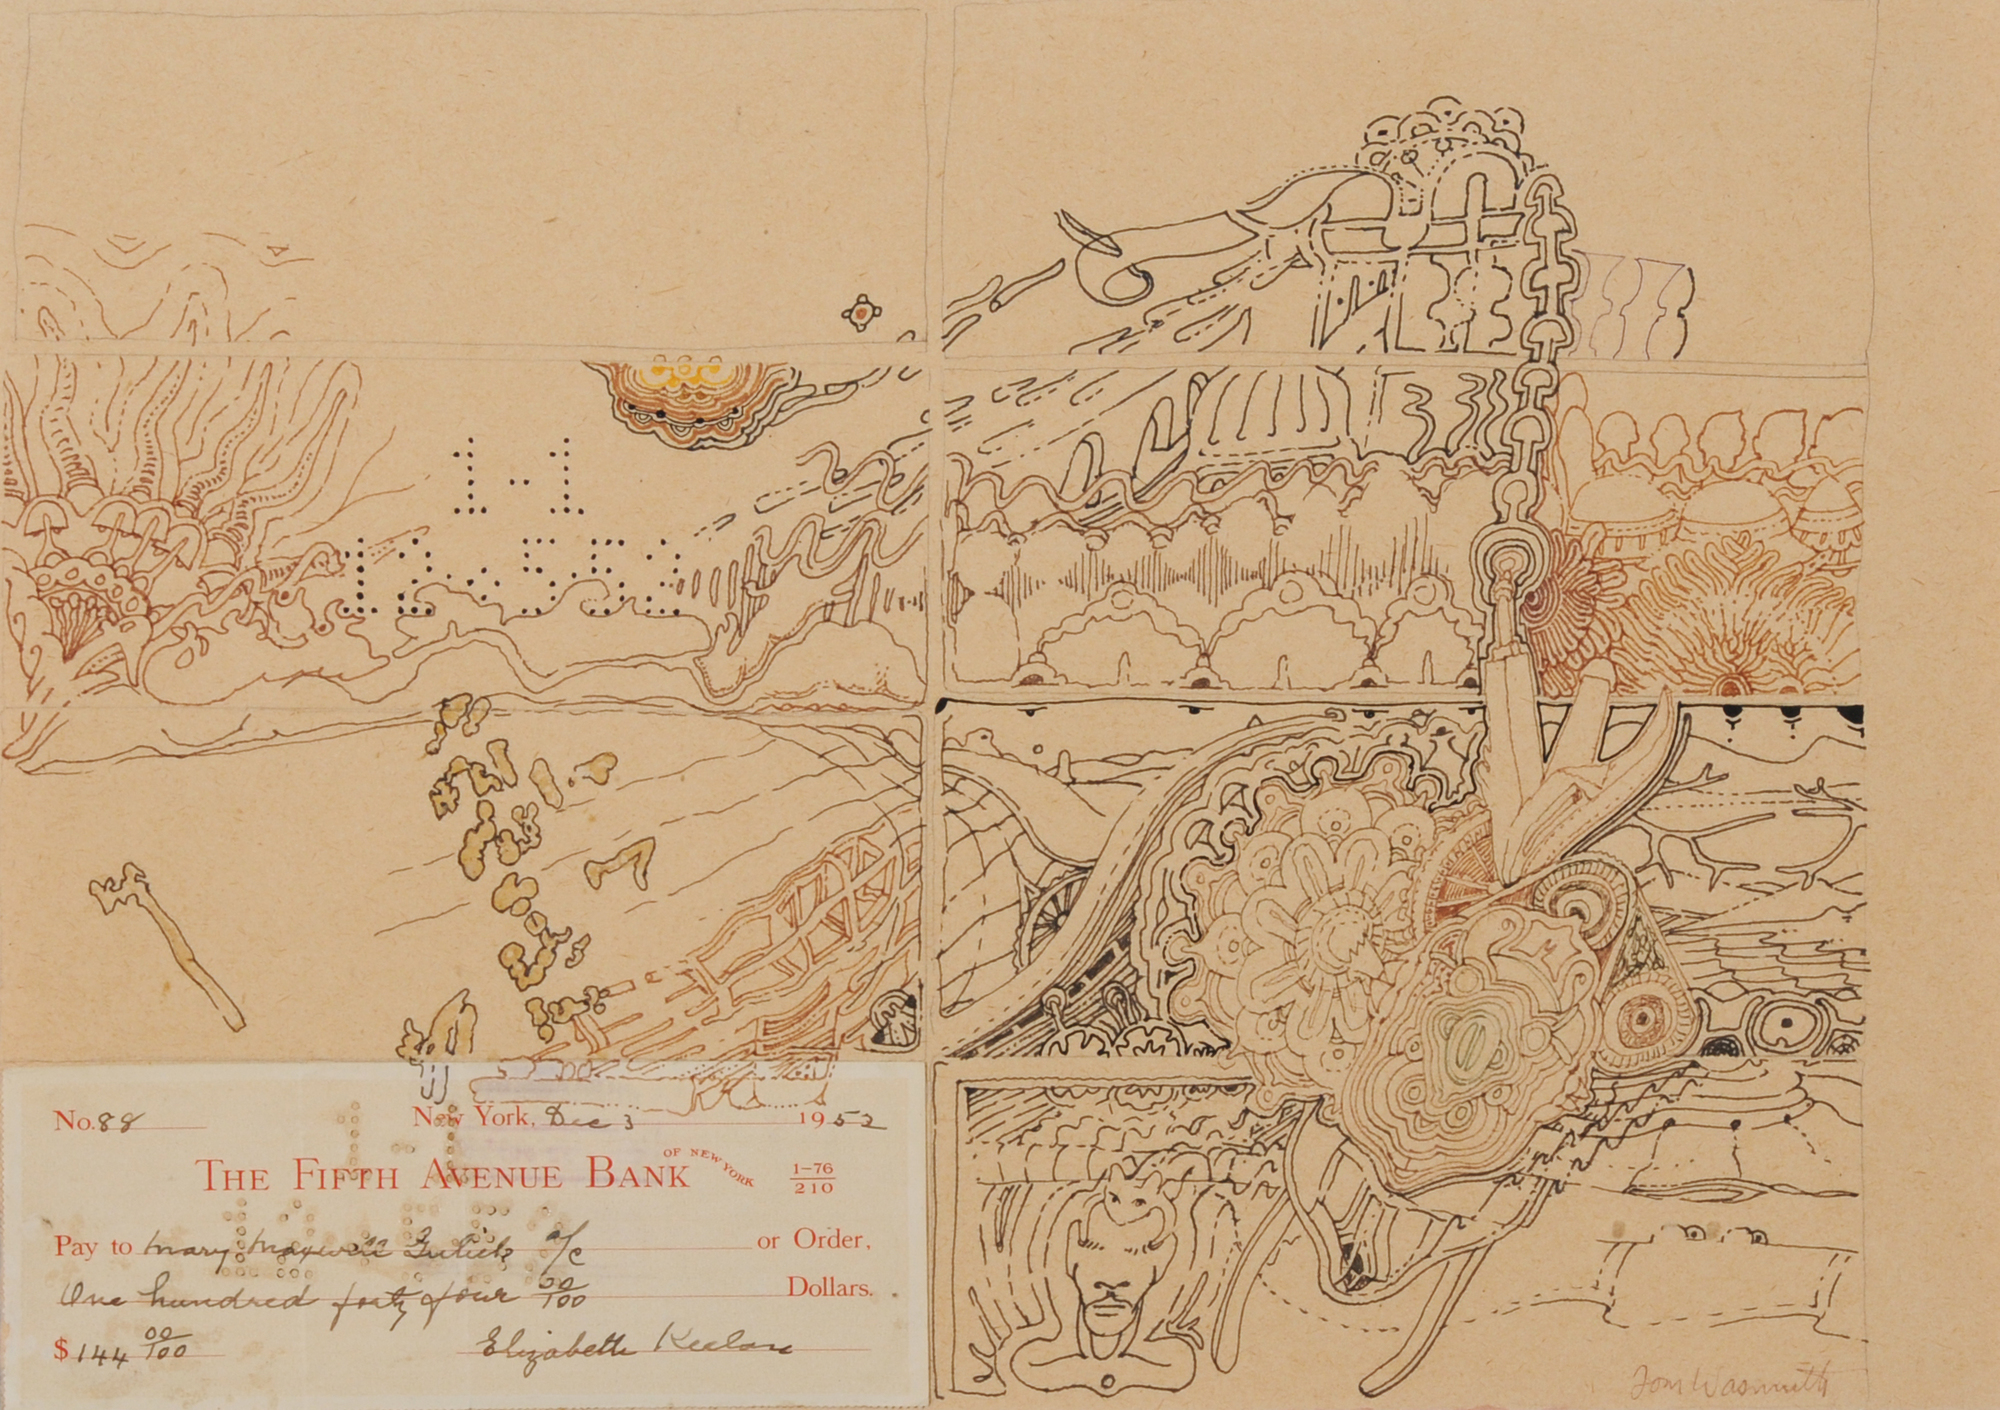 1-1
12..5.53
No. 88 New York, Dec 3 1952
THE FIFTH AVENUE BANK OF NEW YORK 1-76/210
Pay to Mary Maxwell a/c or Order,
One hundred forty four 00/100 Dollars.
$ 144 00/100 Elizabeth
Tom Wasmuth